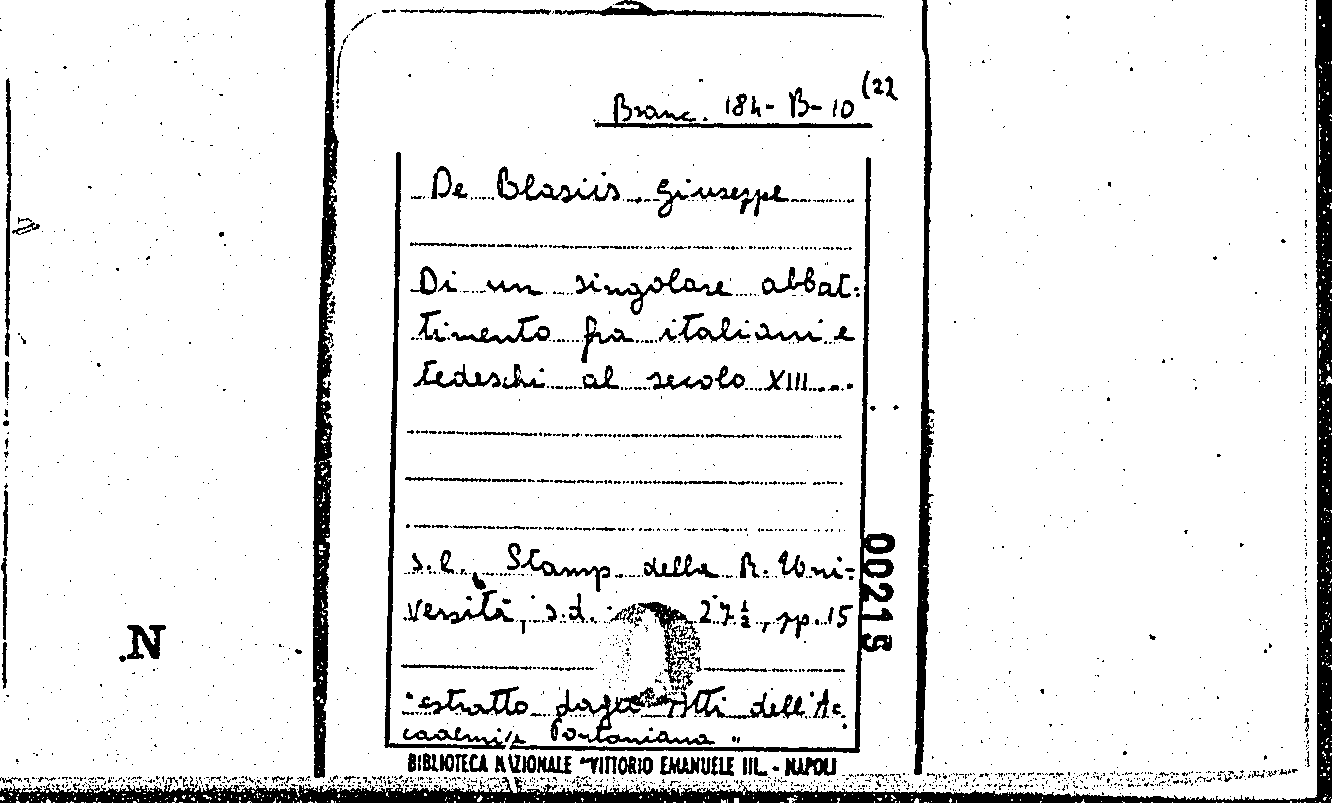 Branc. 184-B-10 (22
De Blasiis, Giuseppe
Di un singolare abbat-
timento fra italiani e
tedeschi al secolo XIII....
s.l., Stamp. della R. Uni-
versità, s.d. 27½, pp. 15
"estratto dagli Atti dell'Ac
cademia Pontaniana"
BIBLIOTECA NAZIONALE "VITTORIO EMANUELE III. - NAPOLI
00215
N